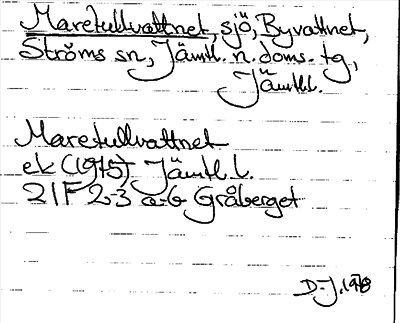 Maretullvattnet, sjö, Byvattnet,
Ströms sn, Jämtl. n. doms. tg,
Jämtl.l.
Maretullvattnet
ek (1915) Jämtl. l.
21F 2-3 a-b Gråberget
D-J. 1978